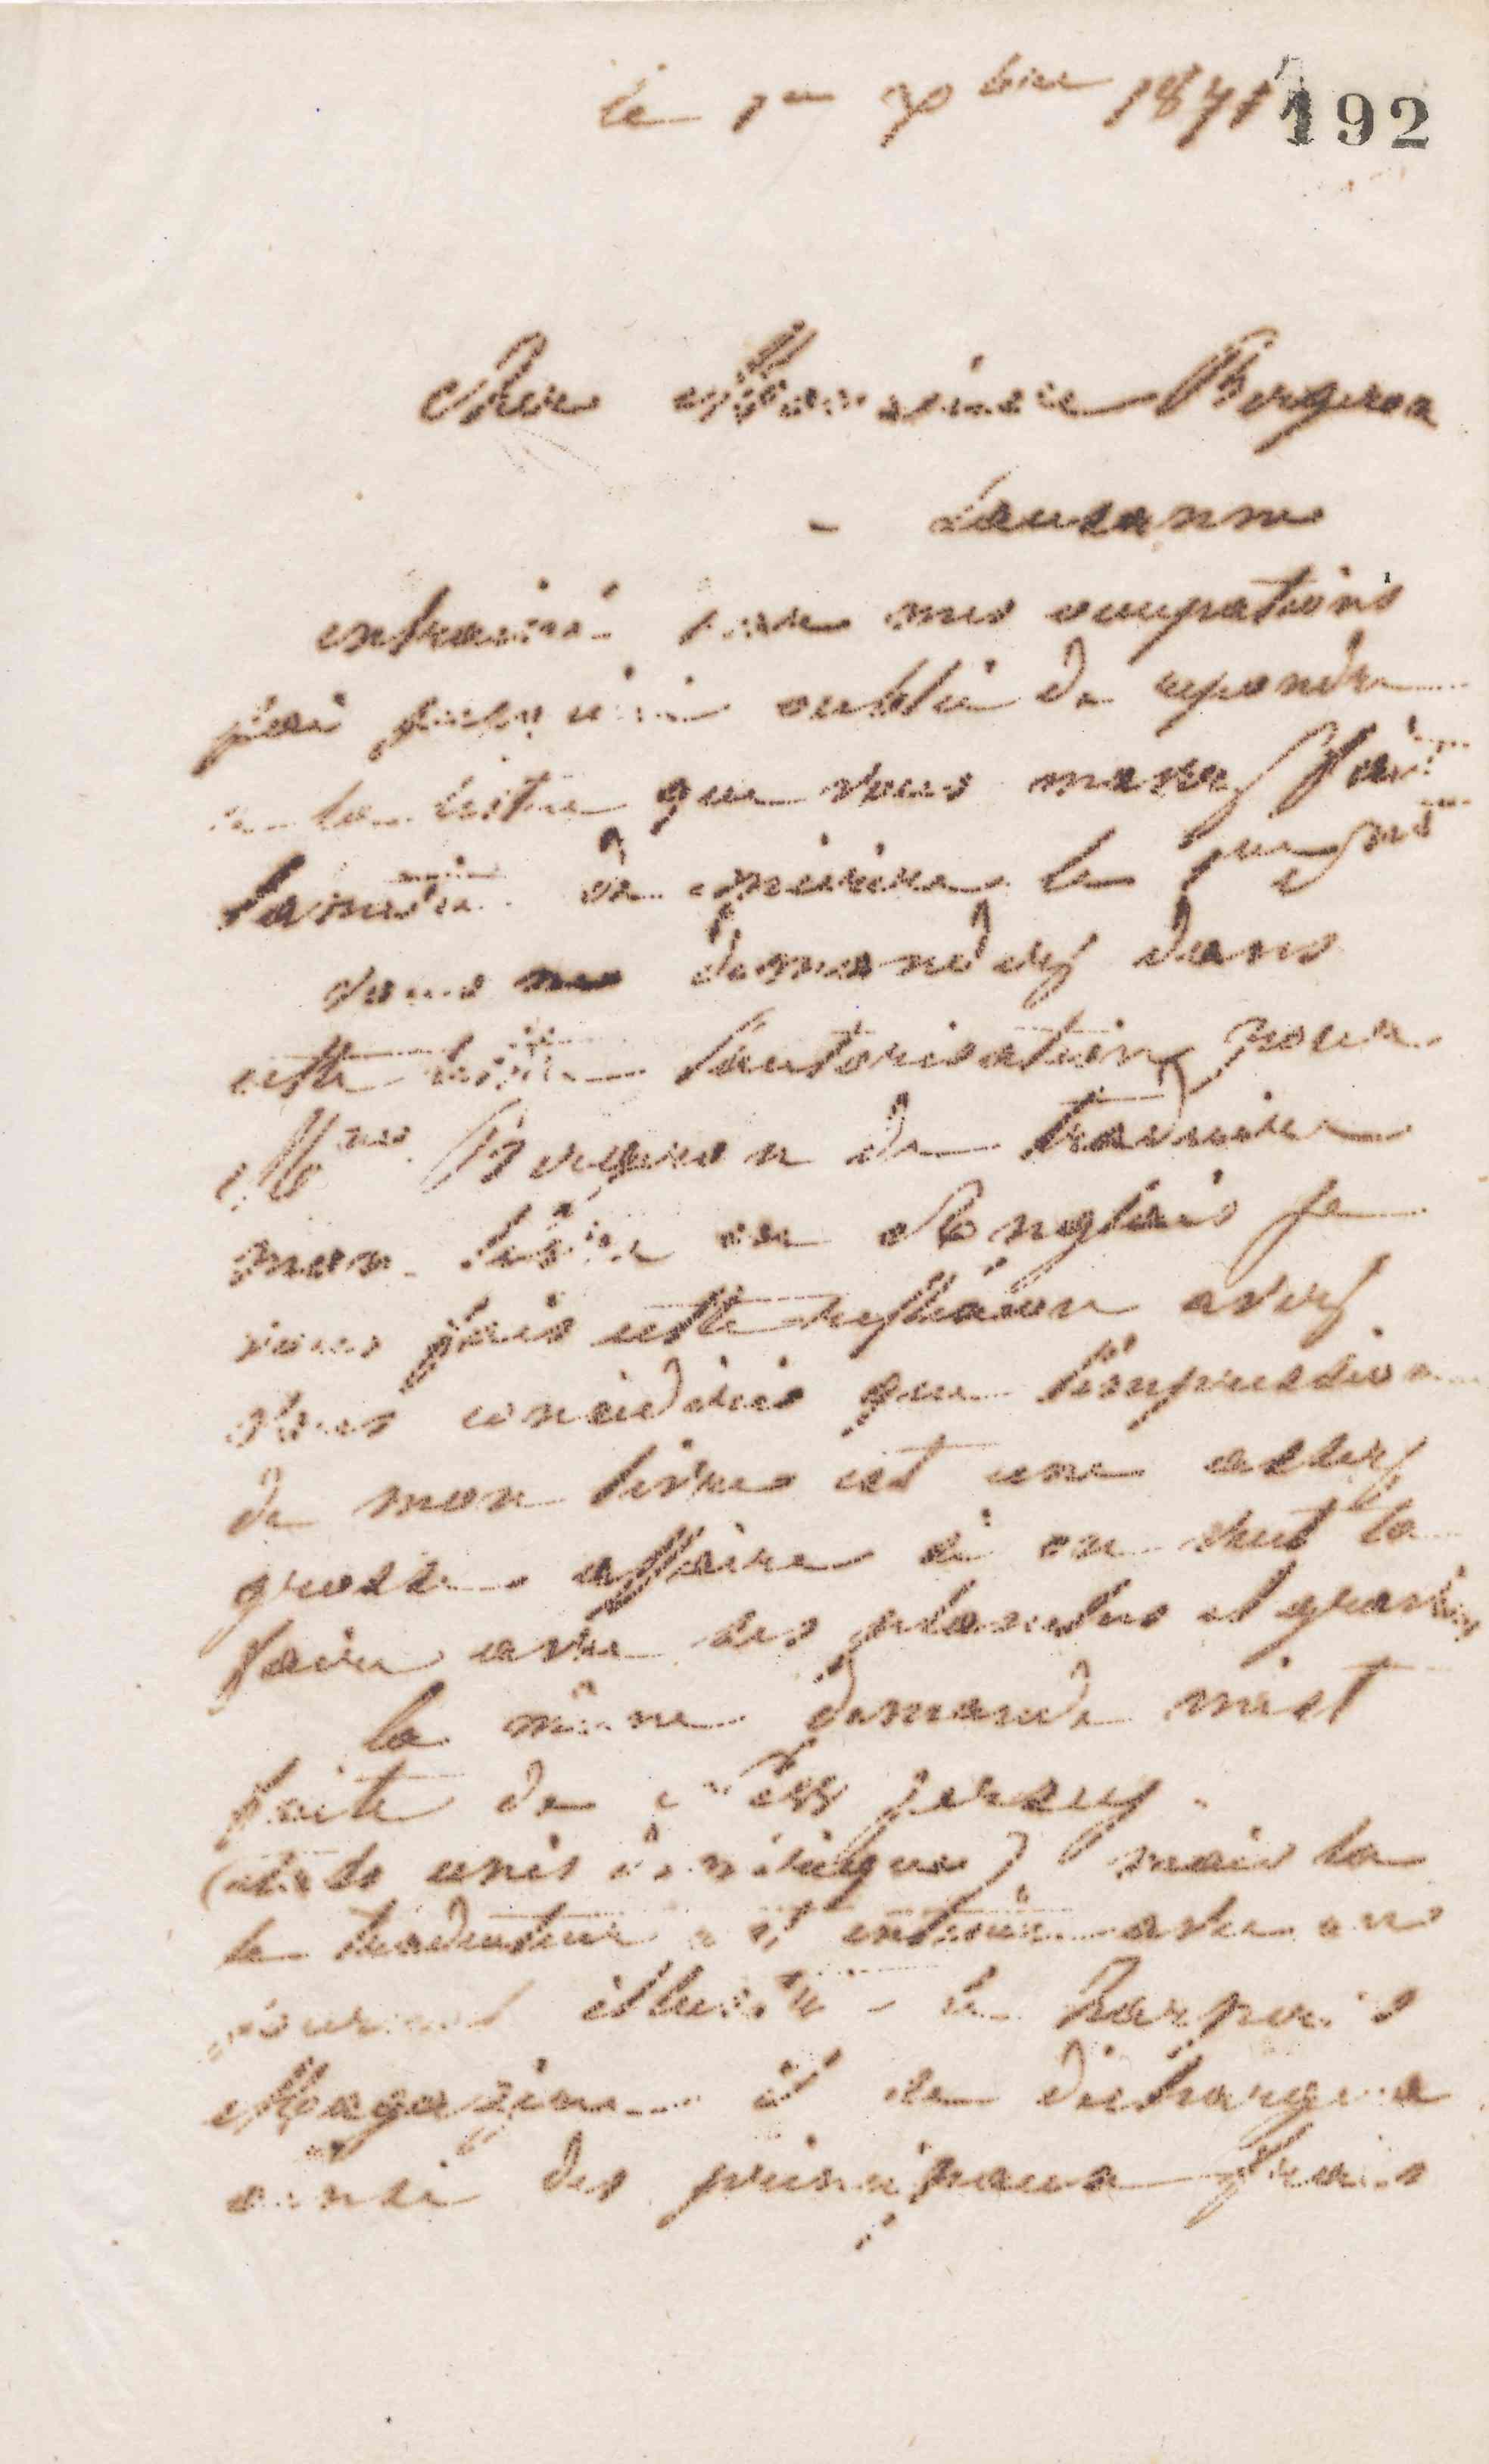 le 1er xbre 1871 192
Cher Monsieur Bergeron
- Lausanne
entrainé par mes ocupations
j'ai jusqu'ici oublié de repondre
a la lettre que vous mavez fait
lamitié de mécrire le 1er
vous me demandez dans
cette lettre l'autorisation pour
Mme Bergeron de traduire
mon livre en Anglais je
vous fais cette reflexion avez
vous considéré que l'impression
de mon livre est une assez
grosse affaire si on veut la
faire avec les planches et gravures
la même demande m'est
faite de New jersey.
(etats unis d'amérique) mais la
le traducteur s'est entendu avec un
journal illustré - le harper's
Magazine il se déchargera
ainsi des principaux frais